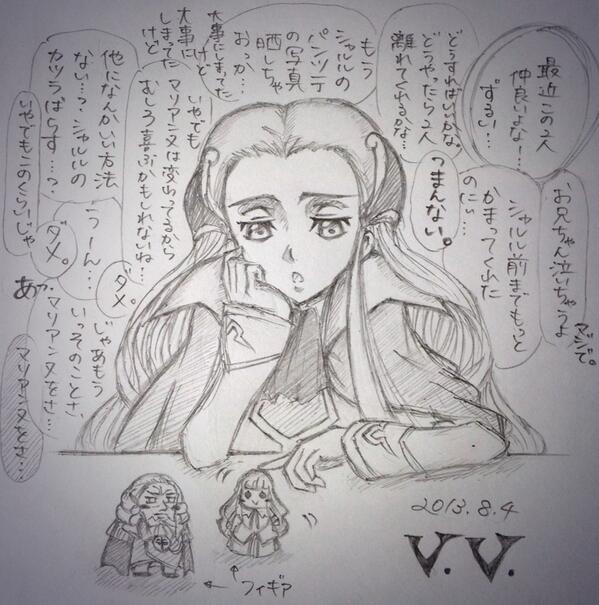 最近この2人
仲良いよなー…
ずるい…
お兄ちゃん泣いちゃうよ
マジで。
シャルル前までもっと
かまってくれた
のにぃ…
つまんない。
どうすればいいかな、
どうやったら2人
離れてくれるかな…
もう
シャルルの
パンツ一丁
の写真
晒しちゃ
おっか…
大事にしまってた
けど
大事に
しまってた
けど
いやでも
マリアンヌは変わってるから
むしろ喜ぶかもしれないね…
ダメ。
他になんかいい方法
ない…？シャルルの
カツラばらす…？
いやでもこのくらいじゃ
ダメ。
うーん…
じゃあもう
いっそのことさ、
マリアンヌをさ…
あっ…
マリアンヌをさ…
2013.8.4
V.V.
フィギア